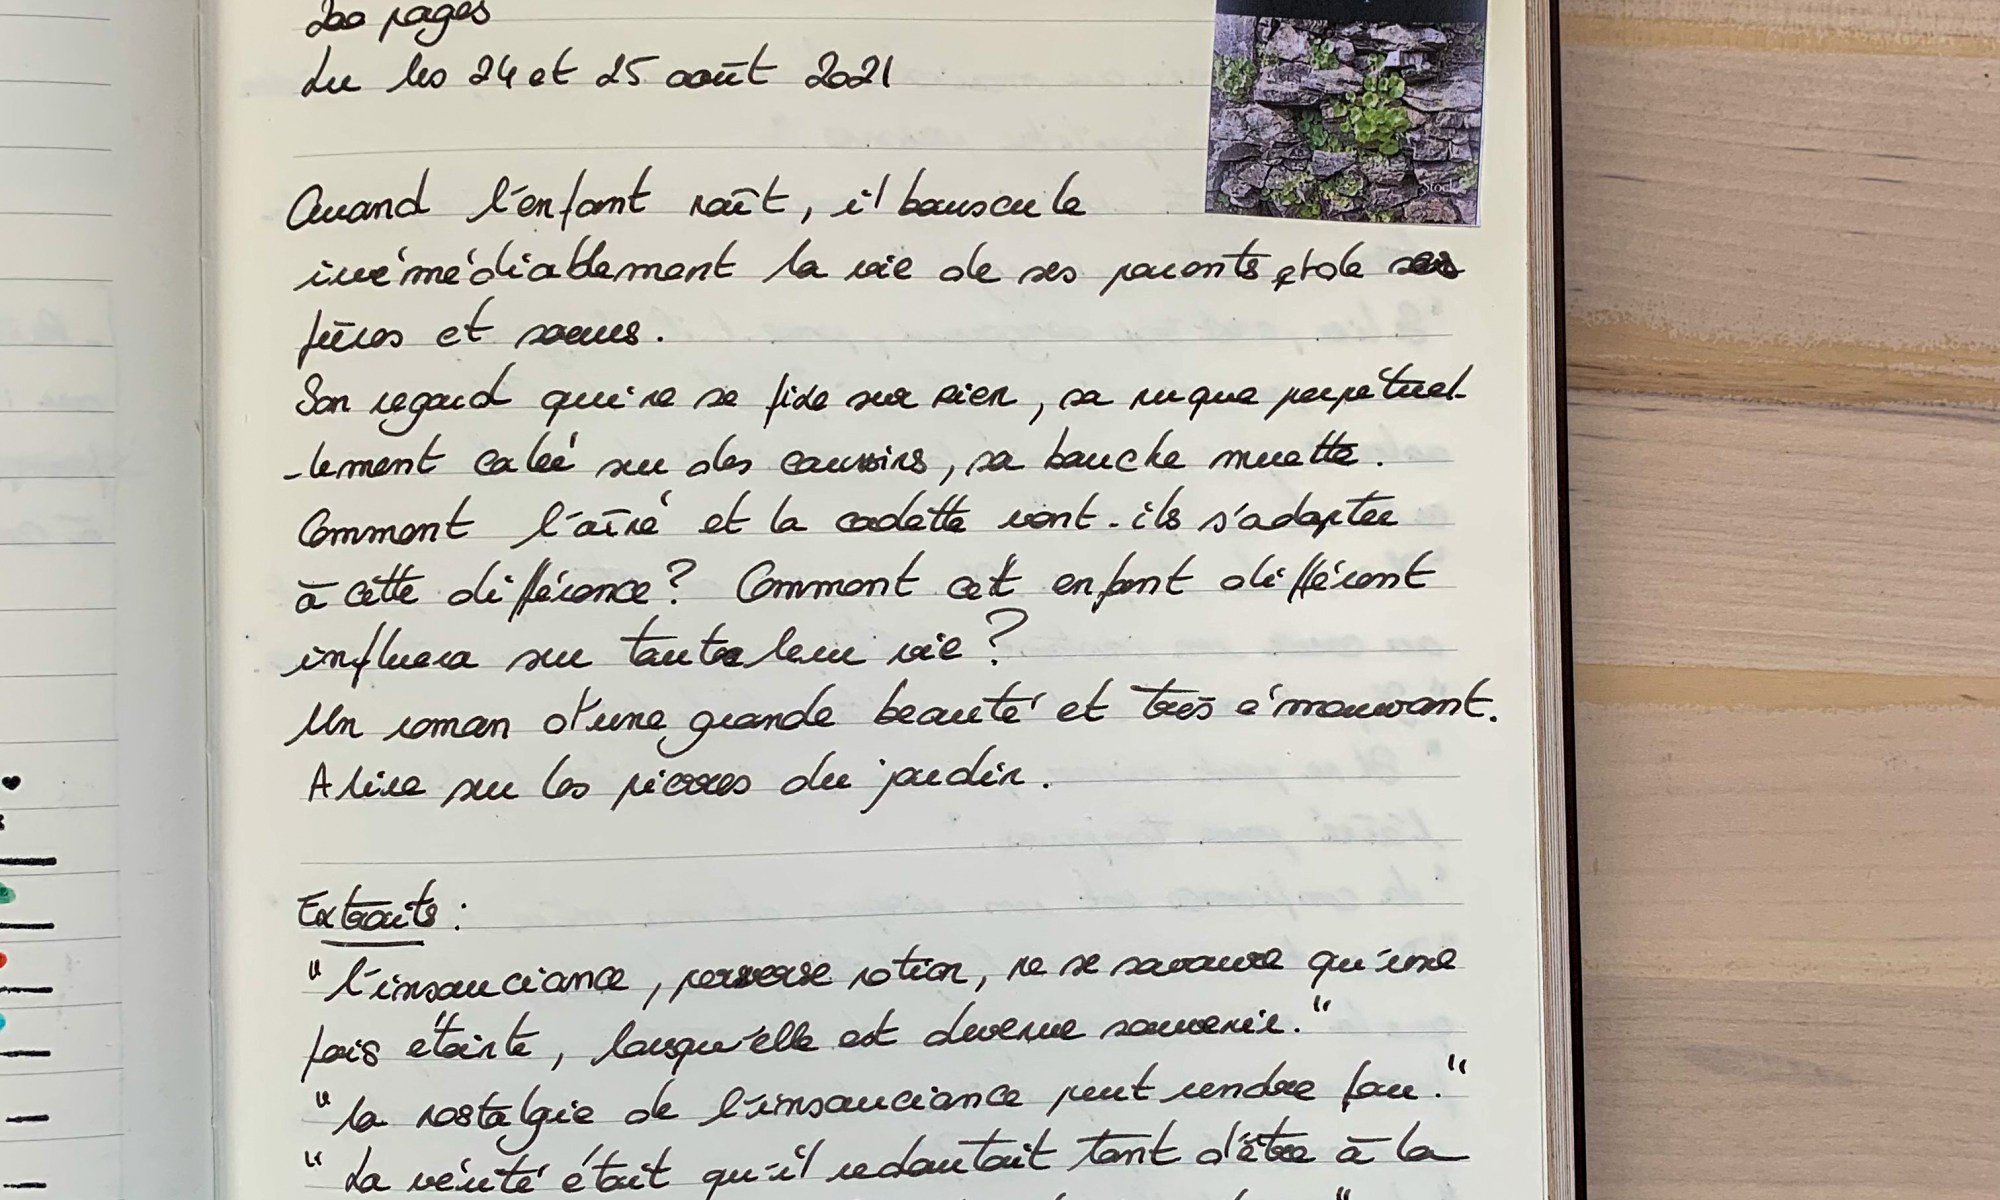 200 pages
Lu les 24 et 25 août 2021
Stock
Quand l'enfant naît, il bouscule
irrémédiablement la vie de ses parents et de ses
frères et soeurs.
Son regard qui ne se fixe sur rien, sa nuque perpétuel-
-lement calée sur des coussins, sa bouche muette.
Comment l'aîné et la cadette vont-ils s'adapter
à cette différence? Comment cet enfant différent
influera sur toute leur vie?
Un roman d'une grande beauté et très émouvant.
A lire sur les pierres du jardin.
Extraits :
"L'insouciance, perverse notion, ne se savoure qu'une
fois éteinte, lorsqu'elle est devenue souvenir."
"la nostalgie de l'insouciance peut rendre fou."
"La vérité était qu'il redoutait tant d'être à la